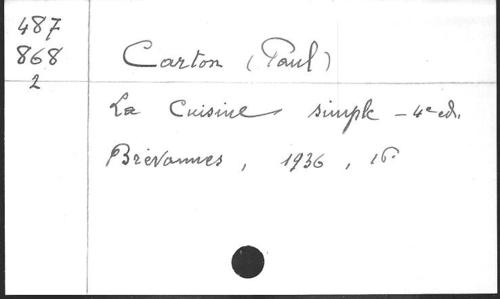 487
868
2
Carton (Paul)
La Cuisine simple - 4e ed.
Brévannes, 1936, 16°